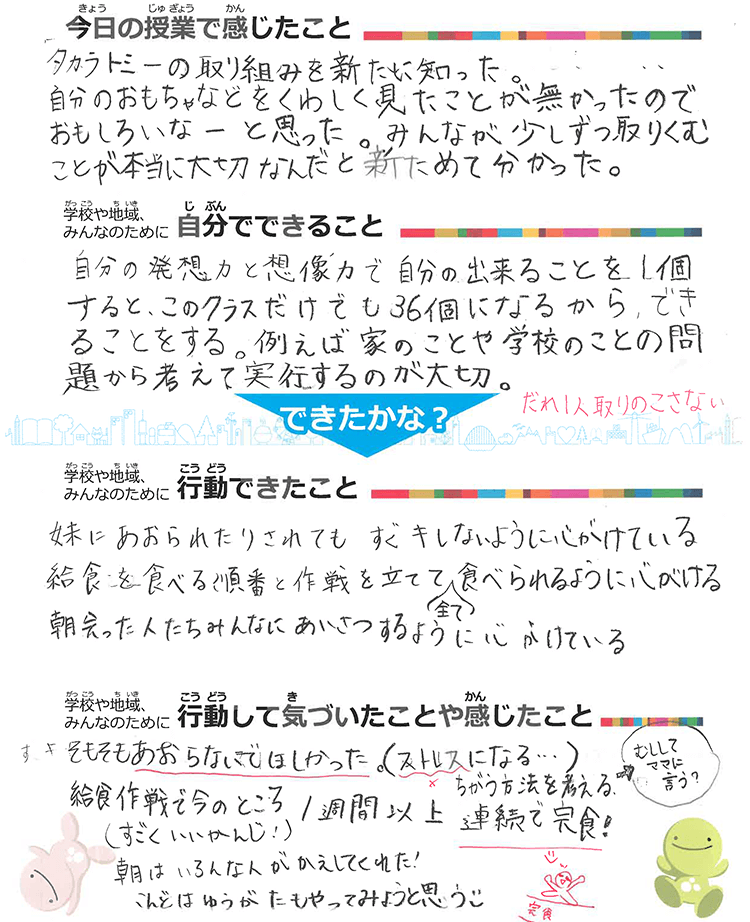 きょう じゅ ぎょう かん
今日の授業で感じたこと
タカラトミーの取り組みを新たに知った。
自分のおもちゃなどをくわしく見たことが無かったので
おもしろいなーと思った。みんなが少しずつ取りくむ
ことが本当に大切なんだと新ためて分かった。
がっ こう ち いき じ ぶん
学校や地域、
みんなのために 自分でできること
自分の発想力と想像力で自分の出来ることを1個
すると、このクラスだけでも36個になるから、でき
ることをする。例えば家のことや学校のことの問
題から考えて実行するのが大切。
だれ1人取りのこさない
できたかな?
がっ こう ち いき こう どう
学校や地域、
みんなのために 行動できたこと
妹にあおられたりされても すぐキレないように心がけている
給食を食べる順番と作戦を立てて食べられるように心がける
全て
朝会った人たちみんなにあいさつするように心がけている
がっ こう ち いき こう どう き かん
学校や地域、
みんなのために 行動して気づいたことや感じたこと
そもそもあおらないでほしかった。(ストレスになる…)
むしして
ママに
言う?
ちがう方法を考える
給食作戦で今のところ 1週間以上 連続で完食!
(すごくいいかんじ!)
朝はいろんな人がかえしてくれた!
こんどはゆうがたもやってみようと思う
完食